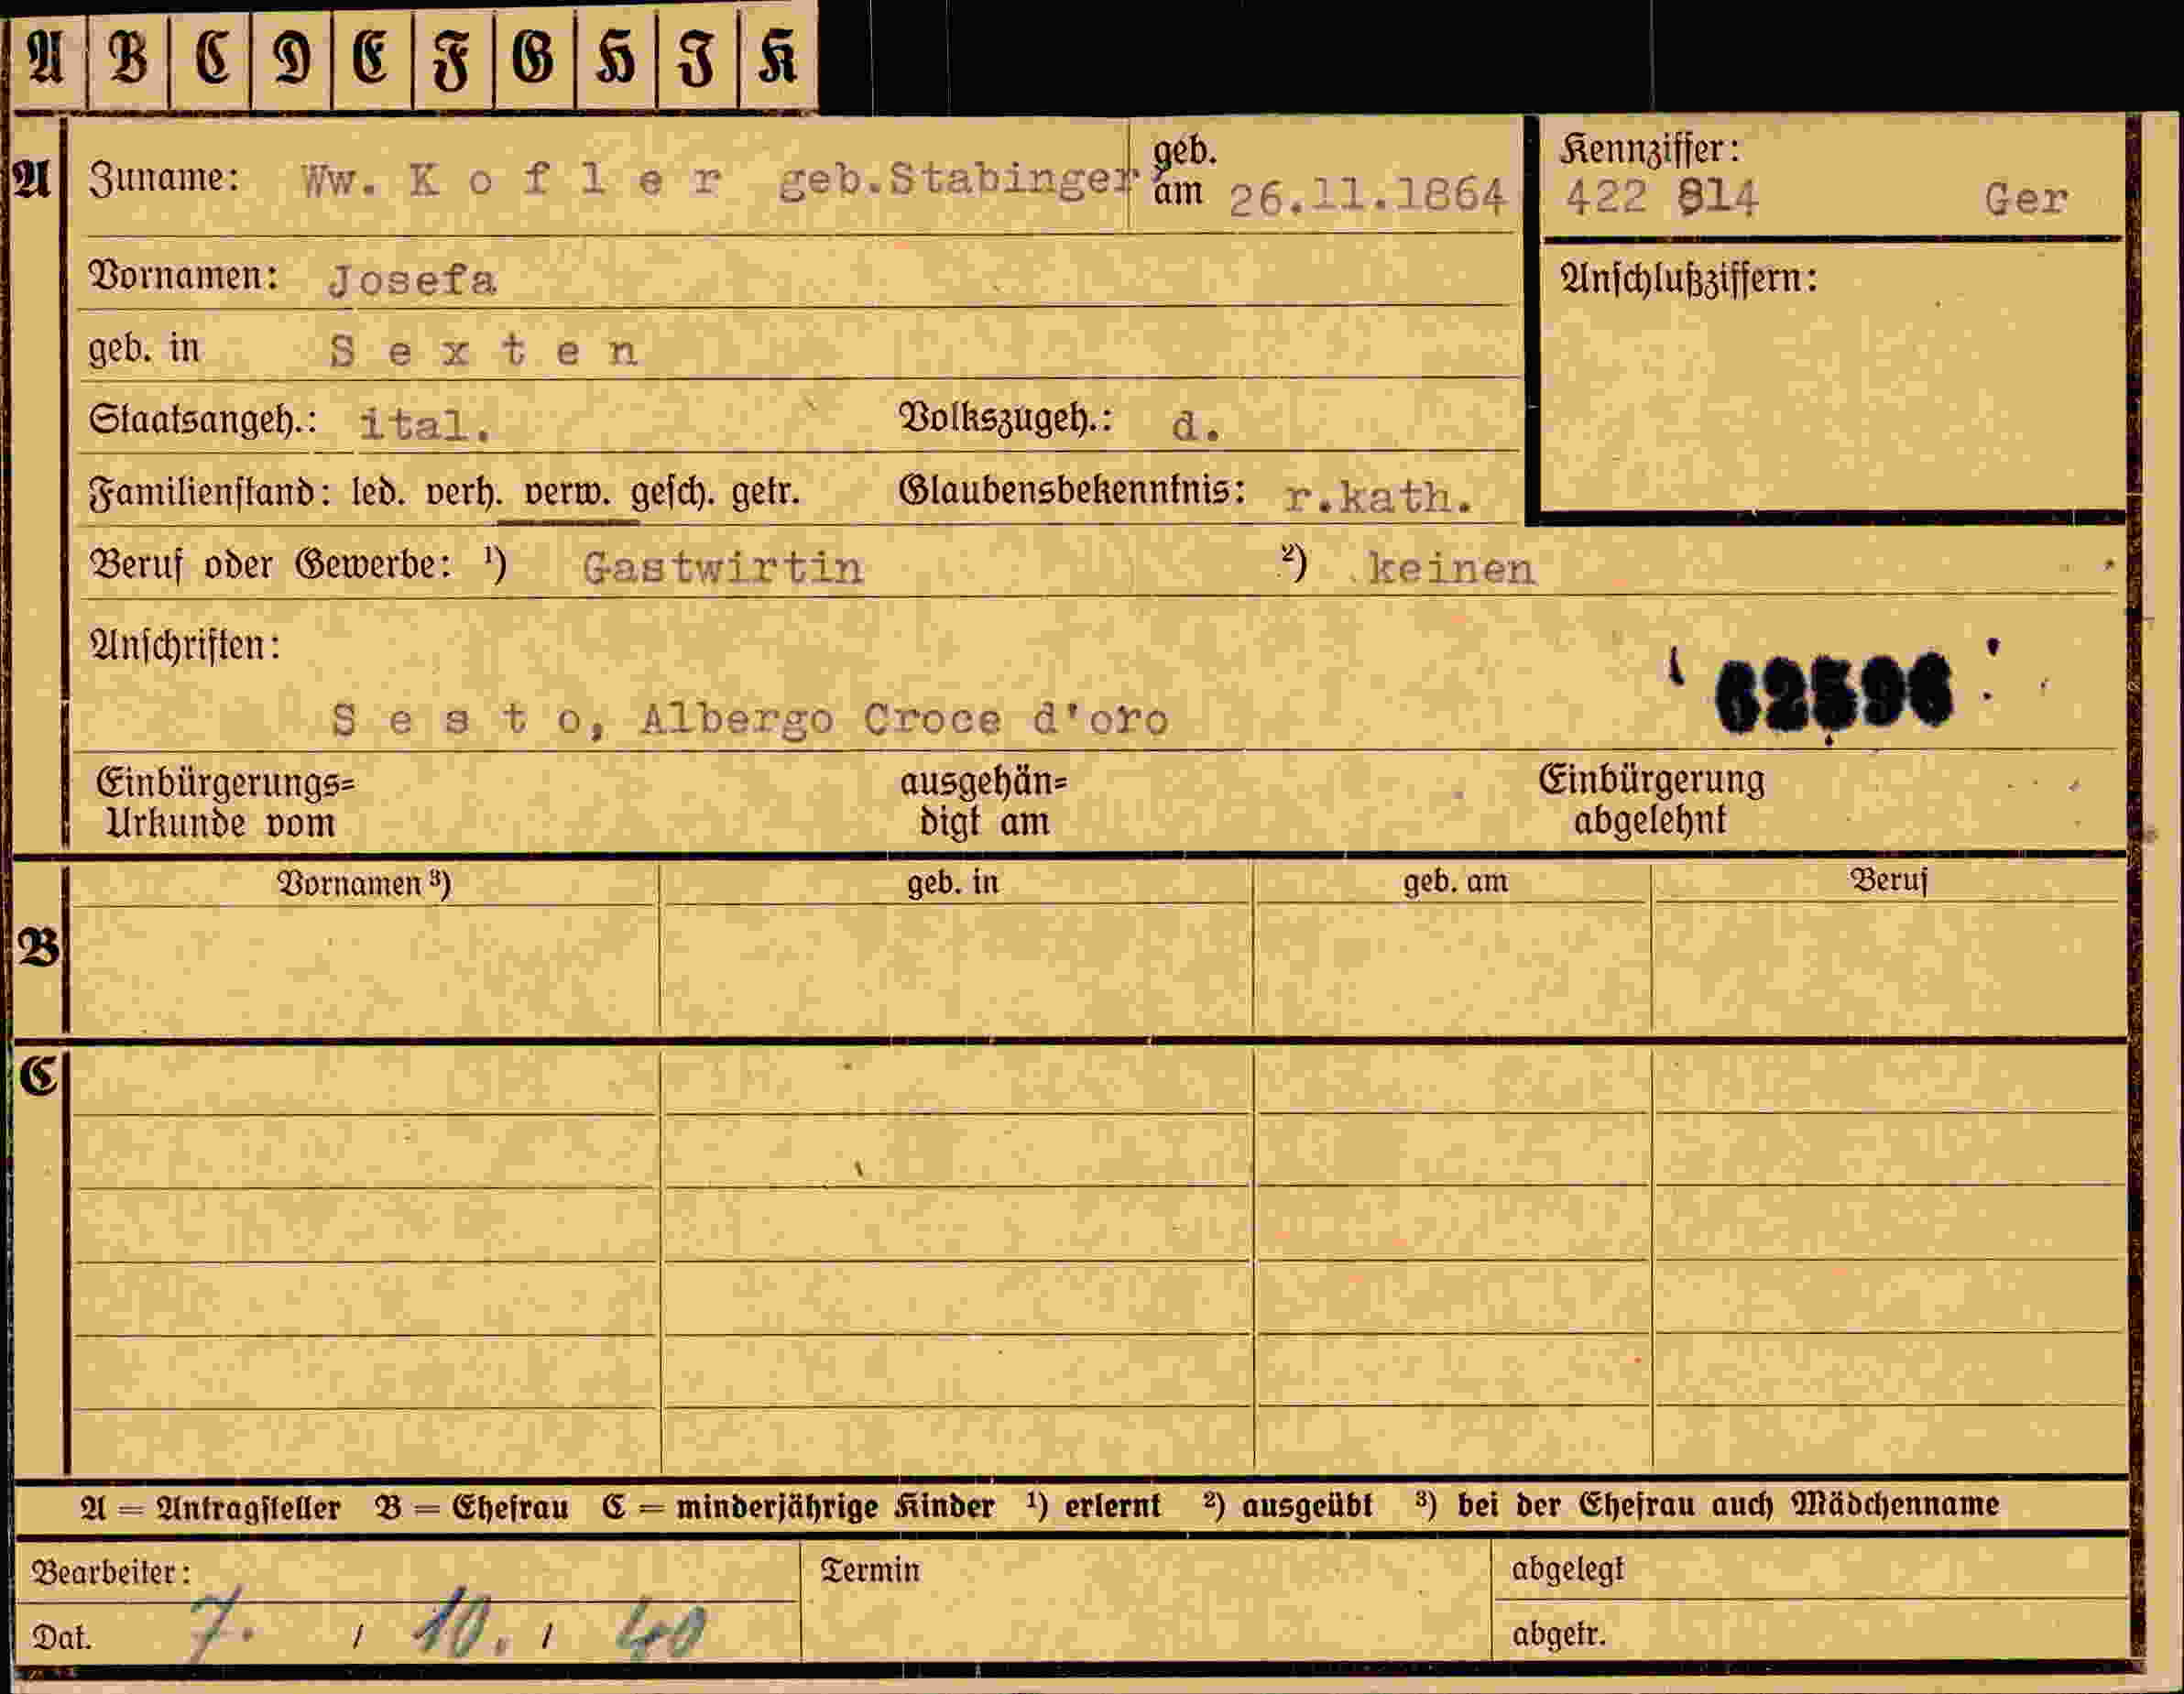 A B C D E F G H I K
A Zuname: Ww. K o f l e r geb.Stabinger geb. am 26.11.1864
Kennziffer:
422 814 Ger
Vornamen: Josefa
Anschlußziffern:
geb. in S e x t e n
Staatsangeh.: ital. Volkszugeh.: d.
Familienstand: led. verh. verw. gesch. getr. Glaubensbekenntnis: r.kath.
Beruf oder Gewerbe: ¹) Gastwirtin ²) keinen
Anschriften:
62596
S e s t o, Albergo Croce d'oro
Einbürgerungs= ausgehän= Einbürgerung
Urkunde vom digt am abgelehnt
Vornamen ³) geb. in geb. am Beruf
B
C
A = Antragsteller B = Ehefrau C = minderjährige Kinder ¹) erlernt ²) ausgeübt ³) bei der Ehefrau auch Mädchenname
Bearbeiter: Termin abgelegt
Dat. 7. / 10. / 40 abgetr.